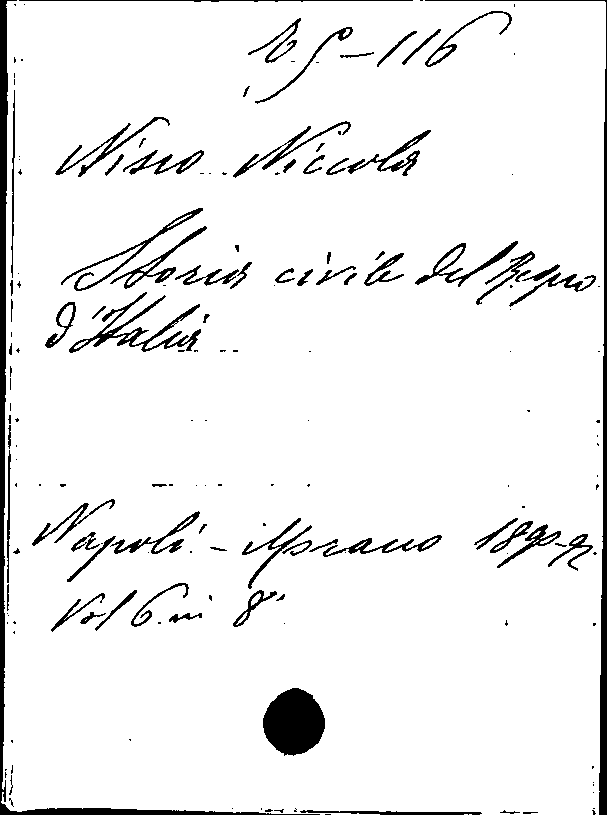 116
Nisco Niccola
Storia civile del Regno
d'Italia
Napoli - Morano
Vol 6 in 8°